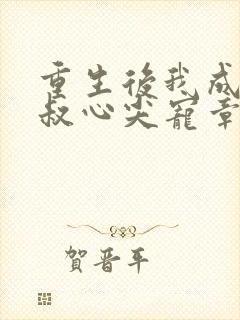 重生後我成
叔心尖寵章
賀晋年